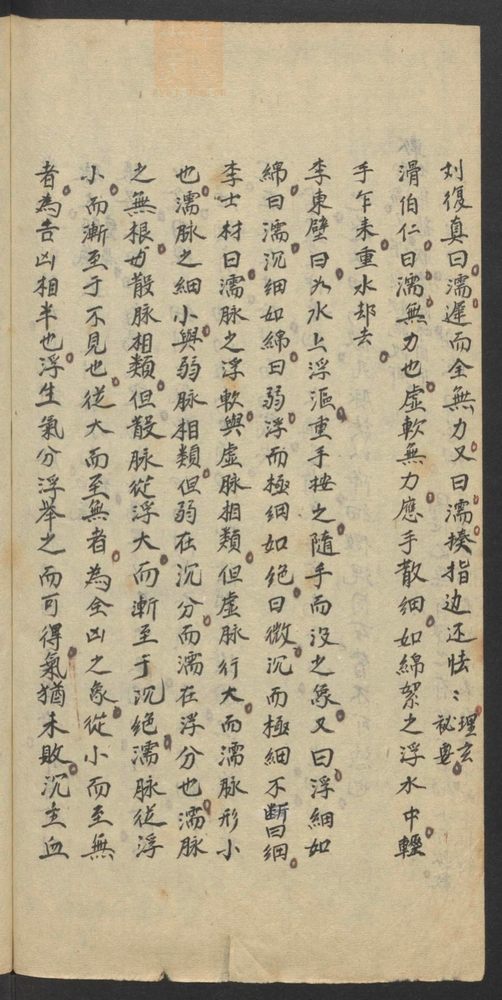 刘復真曰濡遲而全無力又曰濡揍指边还怯〻理玄秘要
滑伯仁曰濡無力也虛軟無力應手散細如綿絮之浮水中輕
手乍来重水却去
李東壁曰如水上浮漚重手按之隨手而没之象又曰浮細如
綿曰濡沉細如綿曰弱浮而極細如绝曰微沉而極細不断曰細
李士材曰濡脉之浮軟與虛脉相類但虛脉行大而濡脉形小
也濡脉之細小與弱脉相類但弱在沉分而濡在浮分也濡脉
之無根与散脉相類但散脉從浮大而漸至于沉绝濡脉從浮
小而漸至于不見也從大而至無者為全凶之象從小而至無
者為吉凶相半也浮生氣分浮举之而可得氣猶未敗沉主血